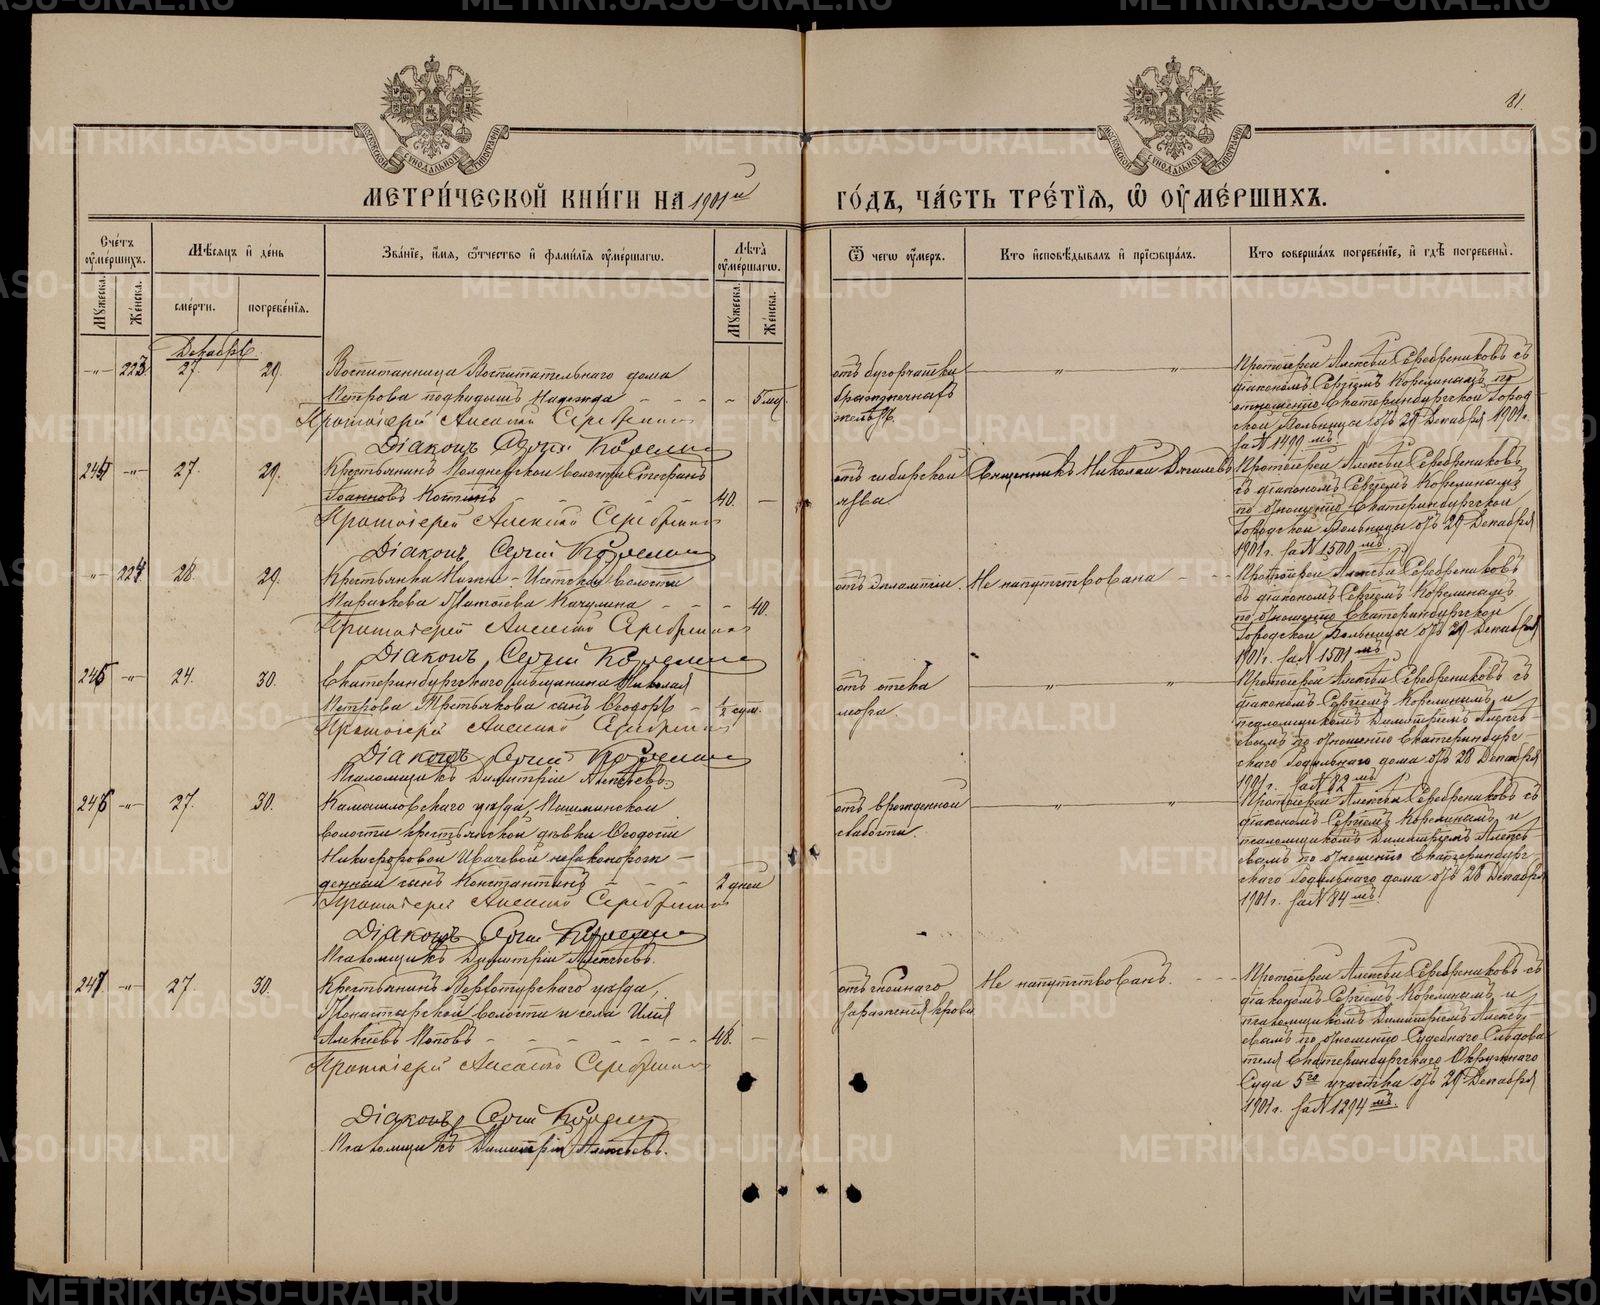 81.
МОСКОВСКОЙ СУНОДАЛЬНОЙ ТИПОГРАФІИ
МОСКОВСКОЙ СУНОДАЛЬНОЙ ТИПОГРАФІИ
МЕТРИ́ЧЕСКОЙ КНИ́ГИ НА 1901 й
ГО́ДЪ, ЧА́СТЬ ТРЕ́ТІѦ, Ѽ ОУ҆МЕ́РШИХЪ.
Сче́тъ оу҆ме́ршихъ.
Мѣсѧцъ и҆ де́нь
Зва́нїе, и҆́мѧ, ѻ҆́тчество и҆ фами́лїѧ оу҆ме́ршагѡ.
Лѣта̀ оу҆ме́ршагѡ.
Ѿ чегѡ̀ оу҆́меръ.
Кто̀ и҆сповѣ́дывалъ и҆ прїѡбща́лъ.
Кто̀ соверша́лъ погребе́нїе, и҆ гдѣ̀ погребены̀.
Мꙋ́жеска.
Же́нска.
сме́рти.
погребе́нїѧ.
Мꙋ́жеска.
Же́нска.
Декабрь.
-"- 223 27. 29.
Воспитанница Воспитательнаго дома
Петрова подкидышъ Надежда
5 мѣ.
Протоіерей Алексій Серебрениковъ
Діаконъ Сергій Корелинъ
отъ бугорчатки
брыжжечныхъ
железъ.
" "
Протоіерей Алексѣй Серебрениковъ съ
діакономъ Сергіемъ Корелинымъ по
отношенію Екатеринбургской Город
ской больницы отъ 29 Декабря 1901 г.
за № 1499 мъ
244 -"- 27. 29.
Крестьянинъ Полдневской волости Стефанъ
Іоанновъ Костинъ
40.
Протоіерей Алексій Серебрениковъ
Діаконъ Сергій Корелинъ
отъ сибирской
язвы.
Священникъ Николай
Протоіерей Алексѣй Серебрениковъ
съ діакономъ Сергіемъ Корелинымъ
по отношенію Екатеринбургской
Городской больницы отъ 29 Декабря
1901 г. за № 1500 мъ
-"- 224 28. 29.
Крестьянка Нижне-Исетской волости
Параскева
40.
Протоіерей Алексій Серебрениковъ
Діаконъ Сергій Корелинъ
отъ эклампсіи.
Не напутствована
Протоіерей Алексѣй Серебрениковъ
съ діакономъ Сергіемъ Корелинымъ
по отношенію Екатеринбургской
Городской больницы отъ 29 Декабря
1901 г. за № 1501 мъ
245 -"- 24. 30.
Екатеринбургскаго мѣщанина Николая
Петрова Третьякова сынъ Ѳеодоръ
1/2 сут.
Протоіерей Алексій Серебрениковъ
Діаконъ Сергій Корелинъ
Псаломщикъ Димитрій Алексѣевъ
отъ отека
мозга.
" "
Протоіерей Алексѣй Серебрениковъ съ
діакономъ Сергіемъ Корелинымъ и
псаломщикомъ Димитріемъ Алексѣ-
евымъ по отношенію Екатеринбург-
скаго Родильнаго дома отъ 28 Декабря
1901 г. за № 82 мъ
246 -"- 27. 30.
Камышловскаго уѣзда, Пышминской
волости крестьянской дѣвки Ѳеодосіи
Никифоровой незаконорож-
денный сынъ Константинъ
2 дней
Протоіерей Алексій Серебрениковъ
Діаконъ Сергій Корелинъ
Псаломщикъ Димитрій Алексѣевъ.
отъ врожденной
слабости.
" "
Протоіерей Алексѣй Серебрениковъ съ
діакономъ Сергіемъ Корелинымъ и
псаломщикомъ Димитріемъ Алексѣ-
евымъ по отношенію Екатеринбург-
скаго Родильнаго дома отъ 28 Декабря
1901 г. за № 84 мъ.
247 -"- 27. 30.
Крестьянинъ Верхотурскаго уѣзда,
Монастырской волости и села Илія
Алексѣевъ Поповъ
48.
Протоіерей Алексій Серебрениковъ
Діаконъ Сергій Корелинъ
Псаломщикъ Димитрій Алексѣевъ.
отъ гнойнаго
зараженія крови
Не напутствованъ.
Протоіерей Алексѣй Серебрениковъ съ
діакономъ Сергіемъ Корелинымъ и
псаломщикомъ Димитріемъ Алексѣ-
евымъ по отношенію Судебнаго Слѣдова
теля Екатеринбургскаго Окружнаго
Суда 5го участка отъ 29 Декабря
1901 г. за № 1294 мъ.
METRIKI.GASO-URAL.RU